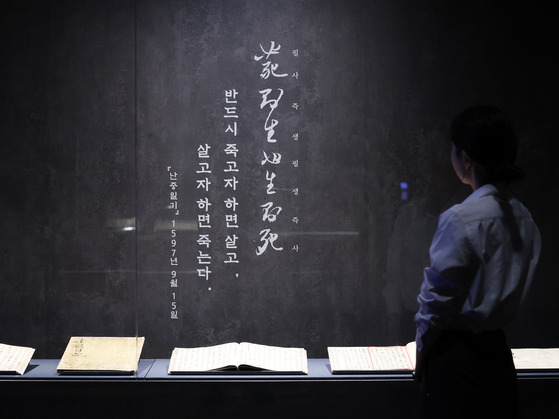 必死則生必生則死
필사즉생필생즉사
반드시 죽고자 하면 살고,
살고자 하면 죽는다.
『난중일기』 1597년 9월 15일